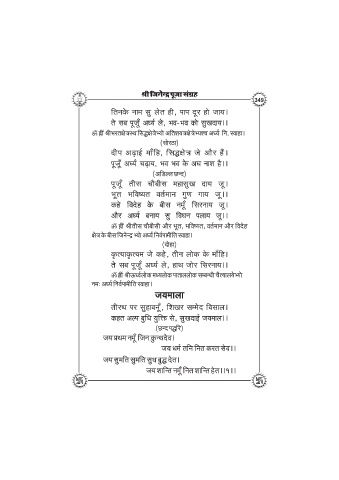 श्री जिनेन्द्र पूजा संग्रह
349
तिनके नाम सु लेत ही, पाप दूर हो जाय।
ते सब पूजूँ अर्घ्य ले, भव-भव को सुखदाय।।
ॐ ह्रीं श्रीभरतक्षेत्रस्थ सिद्धक्षेत्रेभ्यो अतिशयक्षेत्रेभ्यश्च अर्घ्यं नि. स्वाहा।
(सोरठा)
दीप अढ़ाई माँहि, सिद्धक्षेत्र जे और हैं।
पूजूँ अर्घ्य चढ़ाय, भव भव के अघ नाश है।।
(अडिल्ल छन्द)
पूजूँ तीस चौबीस महासुख दाय जू।
भूत भविष्यत वर्तमान गुण गाय जू।।
कहे विदेह के बीस नमूँ सिरनाय जू।
और अर्घ्य बनाय सु विघन पलाय जू।।
ॐ ह्रीं श्रीतीस चौबीसी और भूत, भविष्यत, वर्तमान और विदेह
क्षेत्र के बीस जिनेन्द्र भ्यो अर्घ्यं निर्वपामीति स्वाहा।
(दोहा)
कृत्याकृत्यम जे कहे, तीन लोक के माँहि
ते सब पूजूँ अर्घ्य ले, हाथ जोर सिरनाय।।
ॐ ह्रीं श्रीऊर्ध्वलोक मध्यलोक पाताललोक सम्बन्धी चैत्यालयेभ्यो
नमः अर्घ्यं निर्वपामीति स्वाहा।
जयमाला
तीरथ पर सुहावनूँ, शिखर सम्मेद विसाल।
कहत अल्प बुधि युक्ति से, सुखदाई जयमाल।।
(छन्द पद्धरि)
जय प्रथम नमूँ जिन कुन्थदेव।
जय धर्म तनि नित करत सेव।।
जय सुमति सुमति सुध बुद्ध देत।
जय शान्ति नमूँ नित शान्ति हेत।।१।।